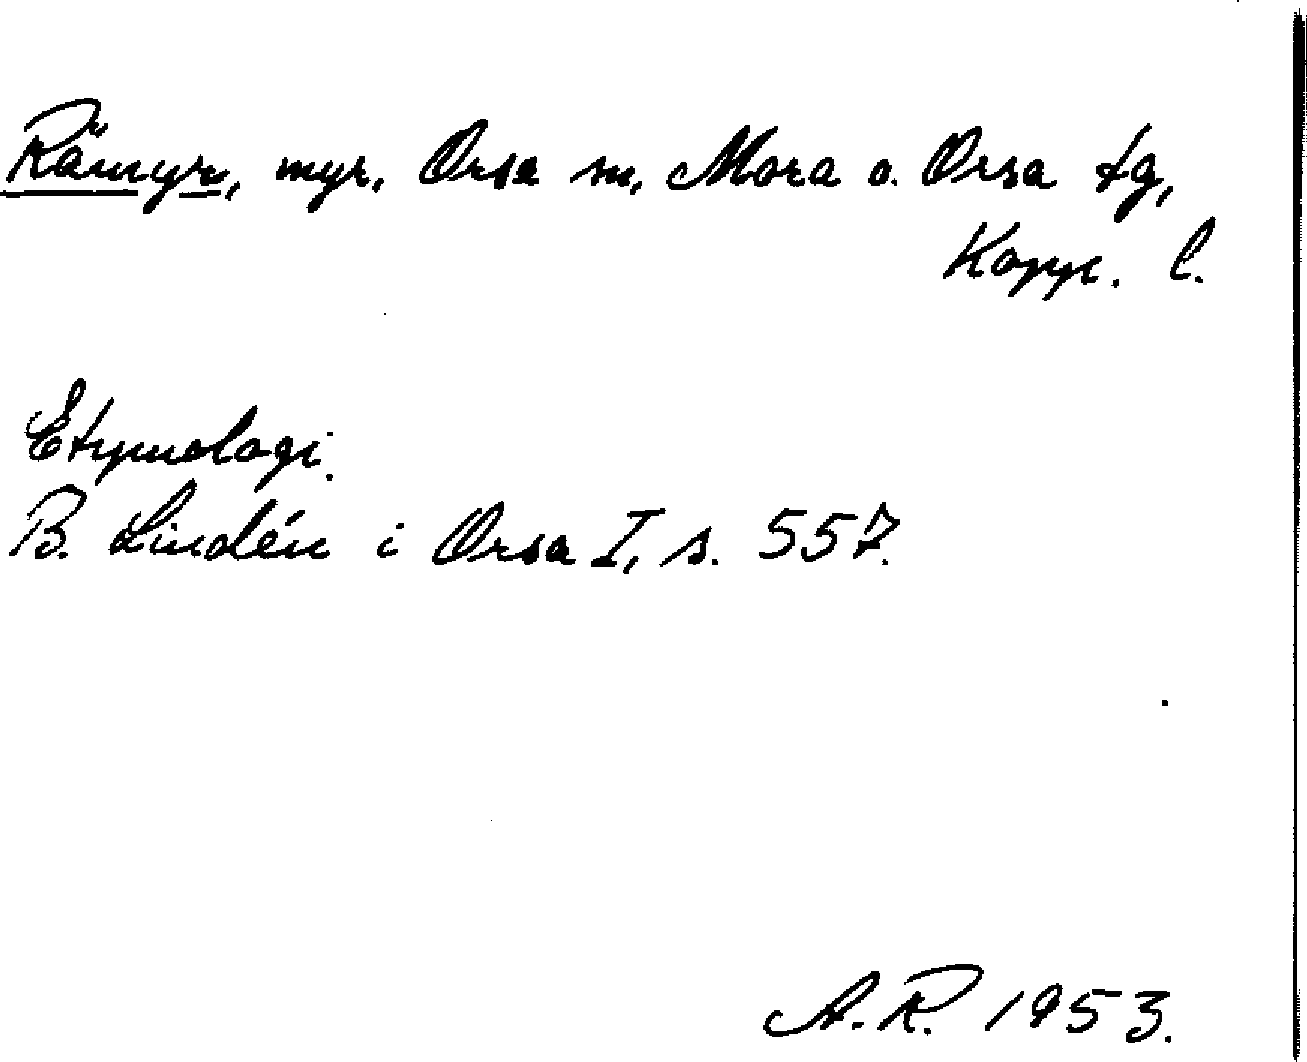 Rämyr, myr, Orsa sn, Mora o. Orsa tg,
Kopp. l.
Etymologi.
B. Lindén i Orsa I, s. 557.
A.R. 1953.